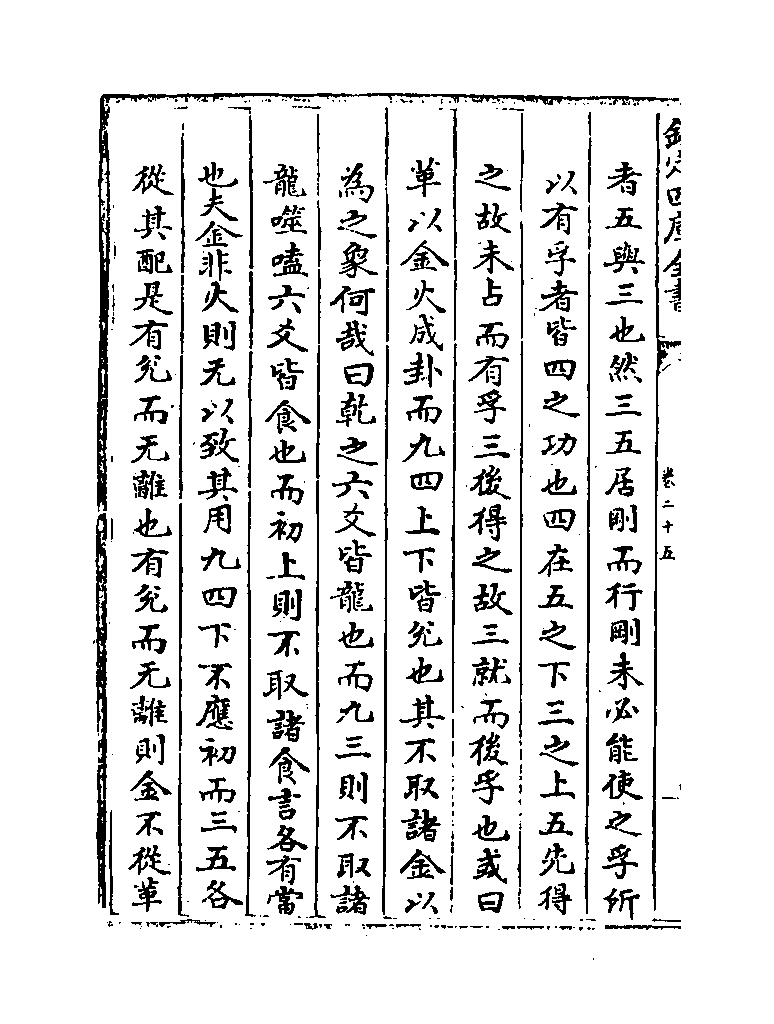 欽定四庫全書
卷二十五
者五與三也然三五居剛而行剛未必能使之孚所
以有孚者皆四之功也四在五之下三之上五先得
之故未占而有孚三後得之故三就而後孚也或曰
革以金火成卦而九四上下皆兊也其不取諸金以
為之象何哉曰乾之六爻皆龍也而九三則不取諸
龍噬嗑六爻皆食也而初上則不取諸食言各有當
也夫金非火則无以致其用九四下不應初而三五各
從其配是有兊而无離也有兊而无離則金不從革